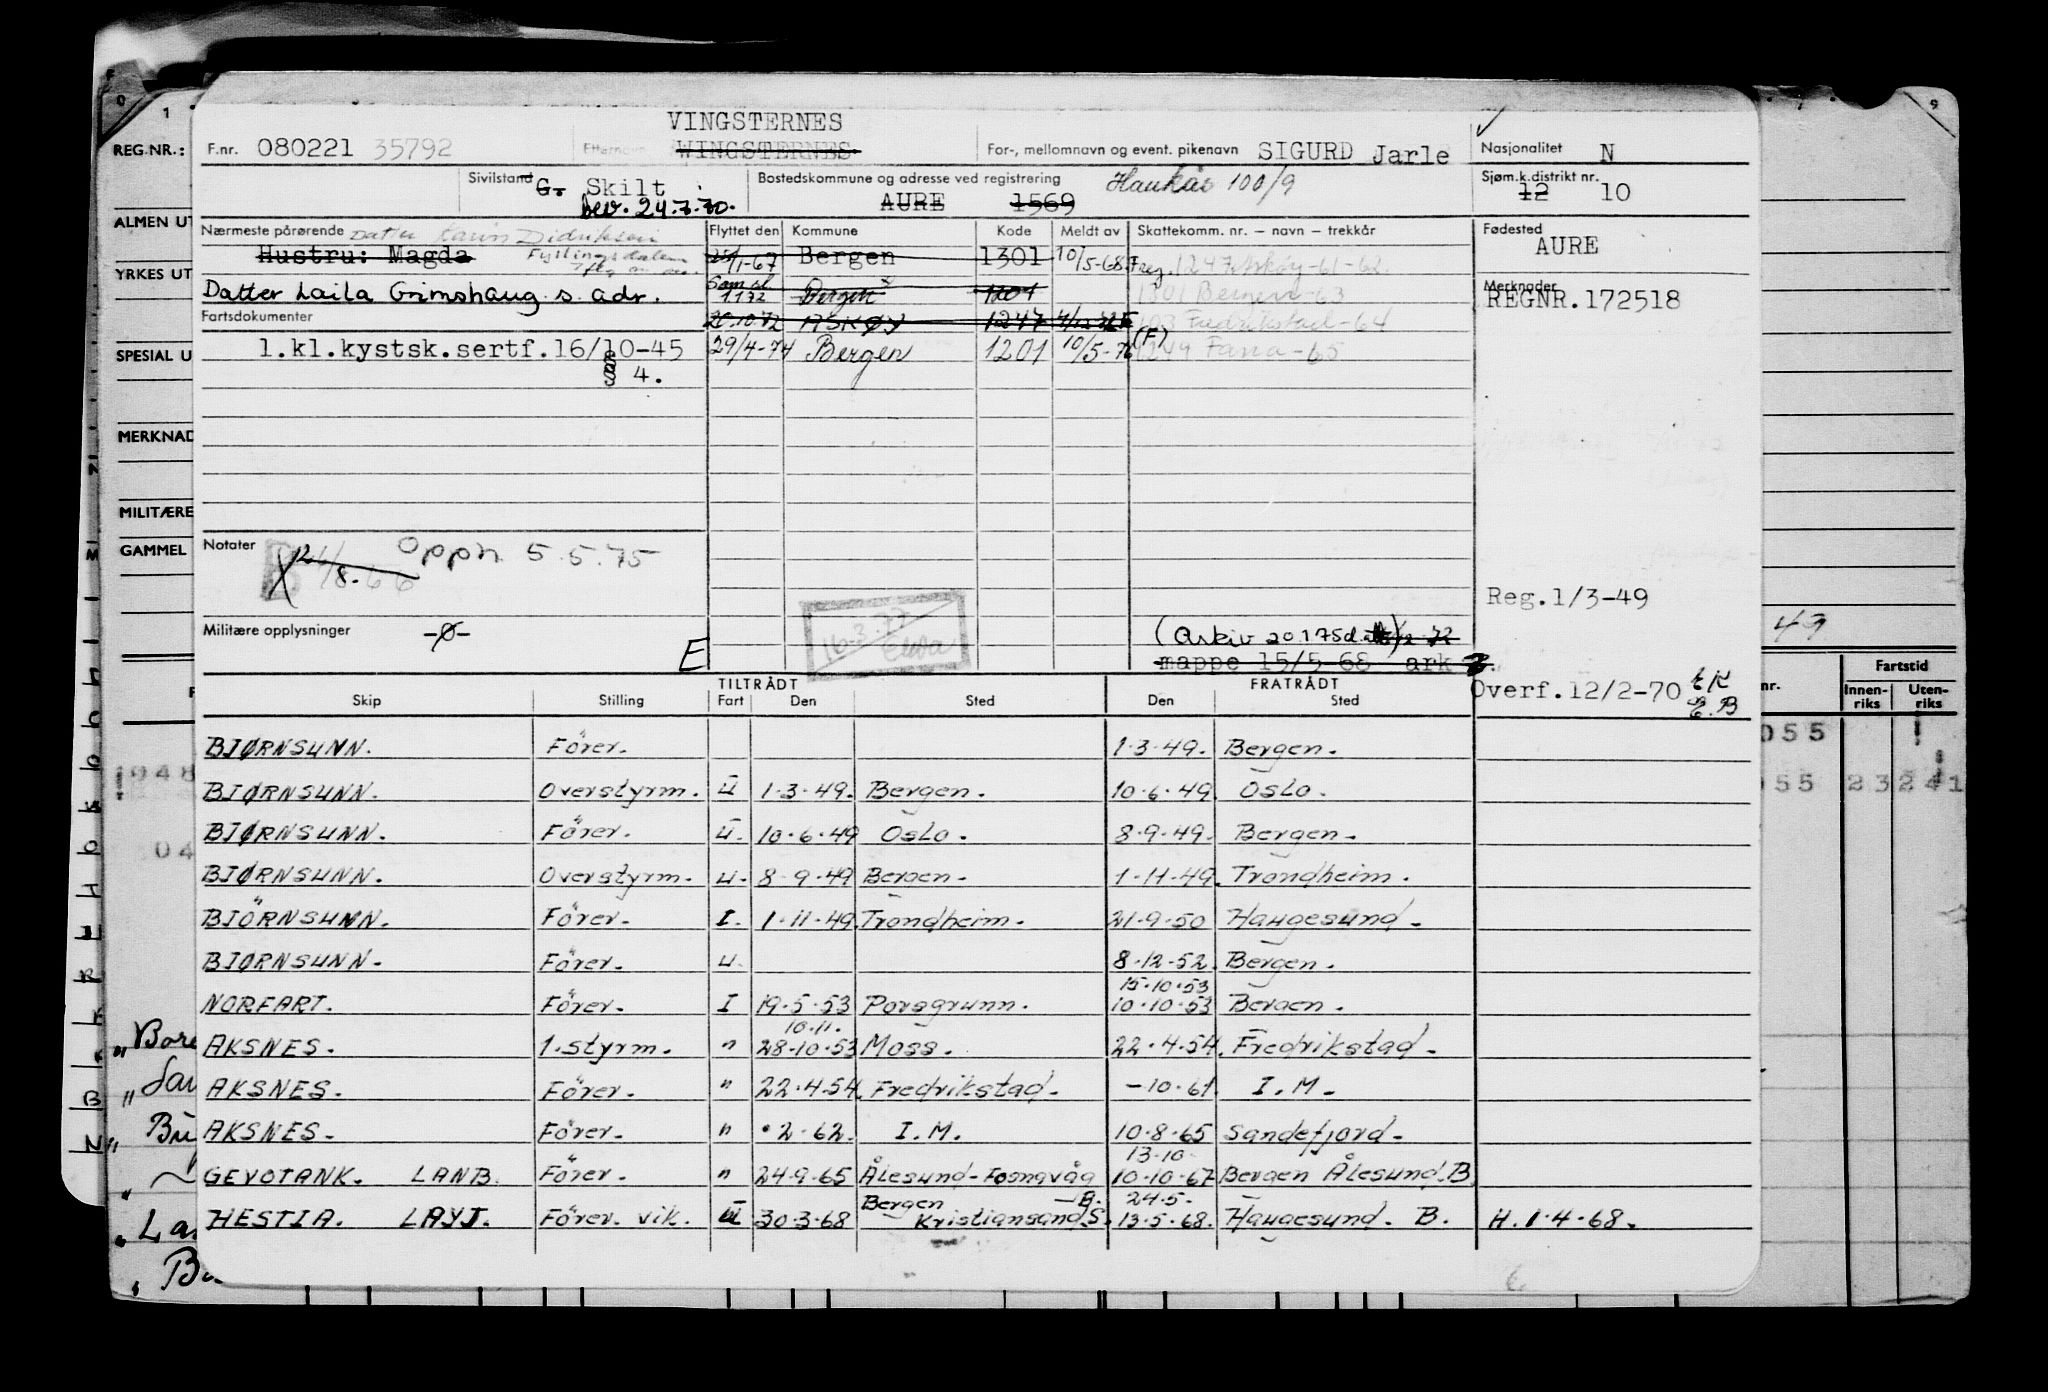 VINGSTERNES
F.nr. 080221 35792 Etternavn WINGSTERNES For-, mellomnavn og event. pikenavn SIGURD Jarle Nasjonalitet N
Sivilstand G. Skilt Bostedskommune og adresse ved registrering Haukås 100/9 Sjøm.k.distrikt nr.
bev. 24.7.70. AURE 1569 12 10
Nærmeste pårørende Datter Karin Didriksen Flyttet den Kommune Kode Meldt av Skattekomm. nr. – navn – trekkår Fødested
Hustru: Magda Fyllingsdalen 1-67 Bergen 1301 10/5-68 Freg. 1247 Askøy-61-62. AURE
Datter Laila Grimshaug s. adr. Som sl. 1.1.72 Bergen 1201 1301 Bergen-63 Merknader REGNR.172518
Fartsdokumenter 20.10.72 ASKØY 1247 103 Fredrikstad-64
1.kl.kystsk.sertf.16/10-45 29/4-74 Bergen 1201 10/5-76 (F) 1249 Fana-65
§ 4.
Notater Oppn 5.5.75
8-66
Reg.1/3-49
16-3-77
Militære opplysninger -0- E (Arkiv 20175d
mappe 15/5-68 ark
Overf.12/2-70 EK
E.B
TILTRÅDT FRATRÅDT
Skip Stilling Fart Den Sted Den Sted
BJØRNSUNN. Förer. 1.3.49. Bergen.
BJØRNSUNN. Overstyrm. U 1.3.49. Bergen. 10.6.49. Oslo.
BJØRNSUNN. Förer. U. 10.6.49 Oslo. 8.9.49. Bergen.
BJØRNSUNN. Overstyrm. U. 8.9.49 Bergen. 1.11.49. Trondheim.
BJÖRNSUNN. Förer. I. 1.11.49. Trondheim. 21.9.50 Haugesund.
BJØRNSUNN. Förer. U. 8.12.52. Bergen.
15.10.53
NORFART. Förer. I 19.5.53 Porsgrunn. 10.10.53 Bergen.
10.11.
AKSNES. 1.styrm. " 28.10.53 Moss. 22.4.54. Fredrikstad.
AKSNES. Förer. " 22.4.54. Fredrikstad. -10.61. I.M.
AKSNES. Förer. " •2.62. I.M. 10.8.65 Sandefjord.
13.10.
GEVOTANK. LANB. Förer. " 24.9.65 Ålesund-Fosnavåg 10.10.67 Bergen Ålesund.B
Bergen -B. 24.5.
HESTIA. LAYJ. Förer. vik. U 30.3.68 Kristiansand.S. 13.5.68. Haugesund. B. H. 1.4.68.
REG.NR.:
ALMEN UT
YRKES UT
SPESIAL U
MERKNAD
MILITÆRE
GAMMEL
49
nr. Fartstid
Innen-riks Uten-riks
055
1948 055 23 241
04